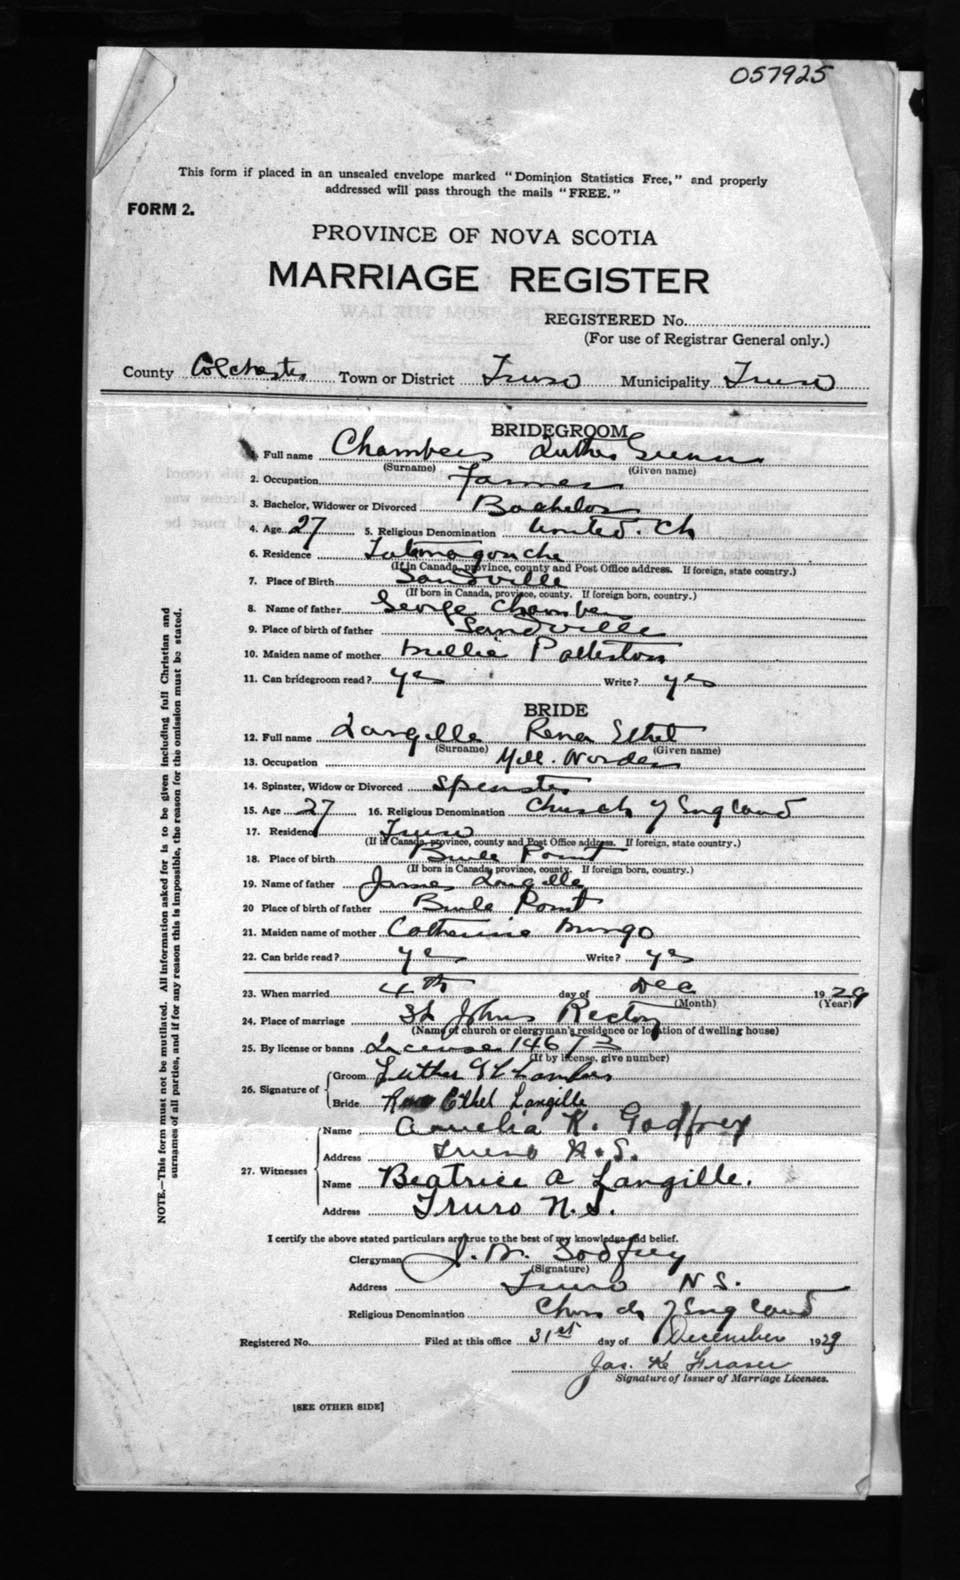 057925
This form if placed in an unsealed envelope marked "Dominion Statistics Free," and properly
addressed will pass through the mails "FREE."
FORM 2.
PROVINCE OF NOVA SCOTIA
MARRIAGE REGISTER
REGISTERED No.
(For use of Registrar General only.)
County Colchester Town or District Truro Municipality Truro
BRIDEGROOM
1. Full name Chambers Luther
(Surname) (Given name)
2. Occupation Farmer
3. Bachelor, Widower or Divorced Bachelor
4. Age 27 5. Religious Denomination United. Ch
6. Residence Tatamagouche
(If in Canada, province, county and Post Office address. If foreign, state country.)
7. Place of Birth Sandville
(If born in Canada, province, county. If foreign born, country.)
8. Name of father George Chambers
9. Place of birth of father Sandville
10. Maiden name of mother Millie Patterson
11. Can bridegroom read? yes Write? yes
BRIDE
12. Full name Langille Rena Ethel
(Surname) (Given name)
13. Occupation Mill. Worker
14. Spinster, Widow or Divorced Spinster
15. Age 27 16. Religious Denomination Church of England
17. Residence Truro
(If in Canada, province, county and Post Office address. If foreign, state country.)
18. Place of birth Brule Point
(If born in Canada, province, county. If foreign born, country.)
19. Name of father James Langille
20 Place of birth of father Brule Point
21. Maiden name of mother Catherine Mingo
22. Can bride read? yes Write? yes
23. When married 4th day of Dec 1929
(Month) (Year)
24. Place of marriage St Johns Rectory
(Name of church or clergyman's residence or location of dwelling house)
25. By license or banns License 14673
(If by license, give number)
26. Signature of Groom Luther G Chambers
Bride Ethel Langille
27. Witnesses Name Amelia K. Godfrey
Address Truro N.S.
Name Beatrice A Langille.
Address Truro N.S.
I certify the above stated particulars are true to the best of my knowledge and belief.
Clergyman J. W. Godfrey
(Signature)
Address Truro N.S.
Religious Denomination Church of England
Registered No. Filed at this office 31st day of December 1929
Jas. K Fraser
Signature of Issuer of Marriage Licenses.
[SEE OTHER SIDE]
NOTE.—This form must not be mutilated. All information asked for is to be given including full Christian and
surnames of all parties, and if for any reason this is impossible, the reason for the omission must be stated.